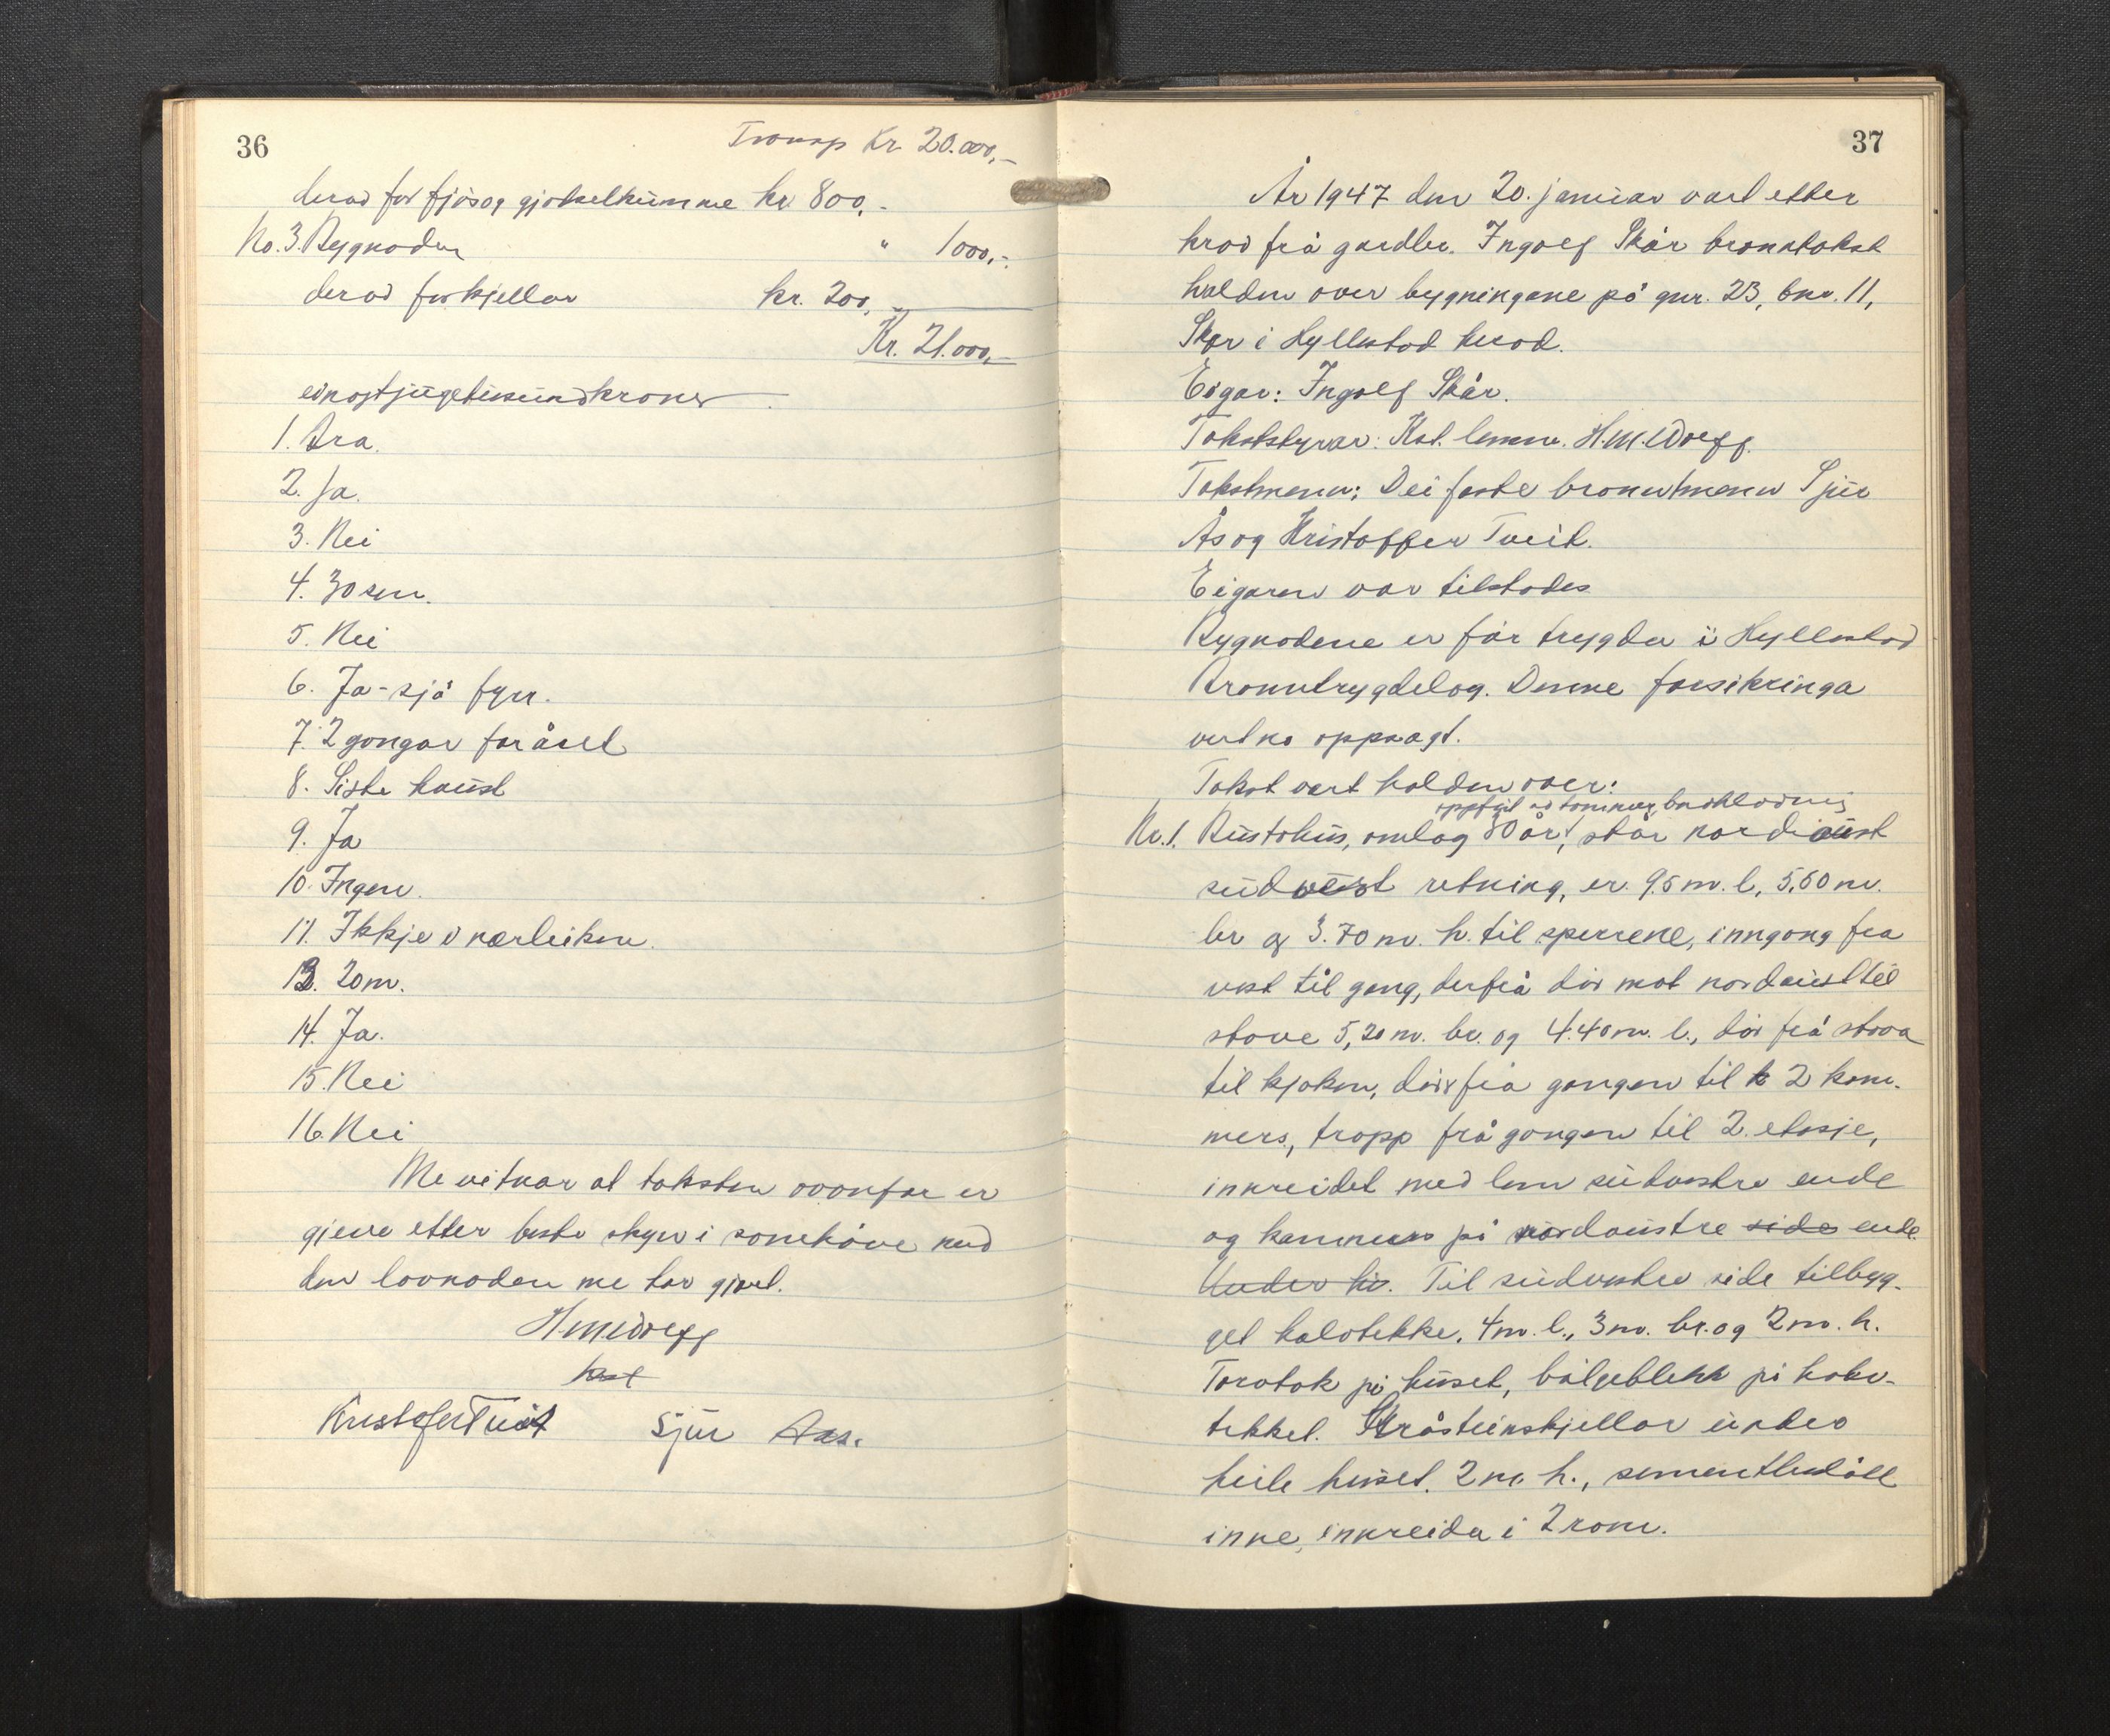 36
Transp Kr. 20.000,-
derav for fjøs og gjødselkumme kr 800,-
No. 3. Bygnoden " 1000,-
derav for kjellar kr. 200,-
Kr. 21.000,-
einogtjugetusundkroner
1. Bra.
2. Ja.
3. Nei
4. 30 cm.
5. Nei
6. Ja - sjå fyrr.
7. 2 gongar for året
8. Siste haust
9. Ja
10. Ingen.
11. Ikkje i nærleiken.
13. 20 m.
14. Ja.
15. Nei
16. Nei
Me vitnar at taksten ovanfor er
gjeve etter beste skyn i samehøve med
den lovnoden me har gjort.
H. M. Wergg
Kristofer Tveit Sjur Aas.
37
År 1947 den 20. januar vart etter
krav frå gardbr. Ingolf Skår branntakst
halden over bygningane på gnr. 23, bnr. 11,
Skor i Hyllestad herad.
Eigar: Ingolf Skår.
Takststyrar: Kst. lensm.
Takstmenn: Dei faste branntmenn Sjur
Ås og Kristoffer Tveit.
Eigaren var tilstades
Bygnodene er før trygda i Hyllestad
Branntrygdelag. Denne forsikringa
vert no oppsagt.
Takst vart halden over:
oppført av tømmer, bordkledning
Nr. 1. Bustohus, omlag 80 år, står nordaust
sudvest retning, er 9.5 m. l, 5,60 m.
br og 3.70 m. h. til sperrene, inngong fra
vest til gang, derfrå dør mot nordaust til
stove 5,20 m. br. og 4.40 m. l., dør frå stova
til kjøken, dør frå gangen til k 2 kam-
mers, tropp frå gongen til 2. etasje,
innreidet med lem sudvestre ende
og kammers på nordaustre side ende.
Under hu. Til sudvestre side tilbygg-
get halvtekke. 4 m. l., 3 m. br. og 2 m. h.
Torvtak på huset, bølgeblekk på halv-
tekket. Gråsteinskjellar under
heile huset. 2 m. h.,
inne, innreida i 2 rom.